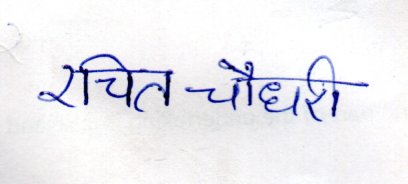 रचित चौधरी